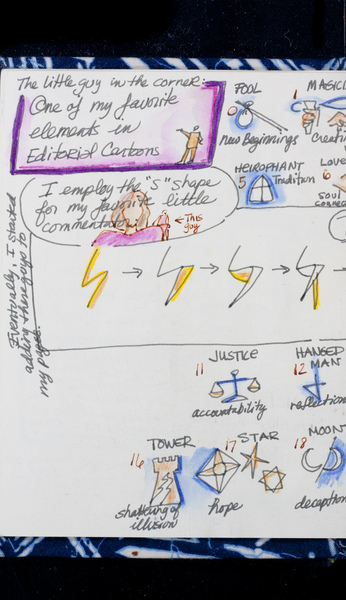 The little guy in the corner:
One of my favorite
elements in
Editorial Cartoons
I employ the "S" shape
for my favorite little
commentator
← This
guy
Eventually, I started
adding these guys to
my pages.
FOOL
0
New Beginnings
MAGICI
1
Creati
HEIROPHANT
5
Tradition
LOVE
6
SOUL
CONNEC
JUSTICE
11
accountability
HANGED
MAN
12
reflection
TOWER
16
shattering of
illusion
STAR
17
hope
MOON
18
deception